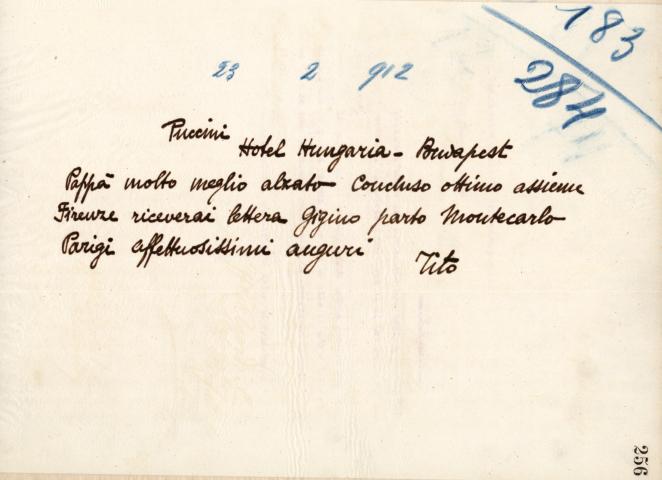 183
284
23 2 912
Puccini
Hotel Hungaria - Budapest
Pappà molto meglio alzato - Concluso ottimo assieme
Firenze riceverai lettera Gigino parto Montecarlo
Parigi affettuosissimi auguri
Tito
256